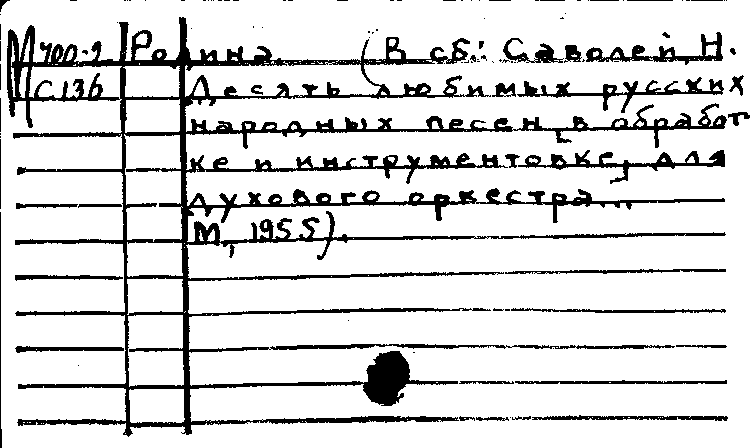 М 700-2 Родина. (В сб.: Саволей, Н.
С136 Десять любимых русских
народных песен [в обработ
ке и инструментовке] для
духового оркестра...
М, 1955).